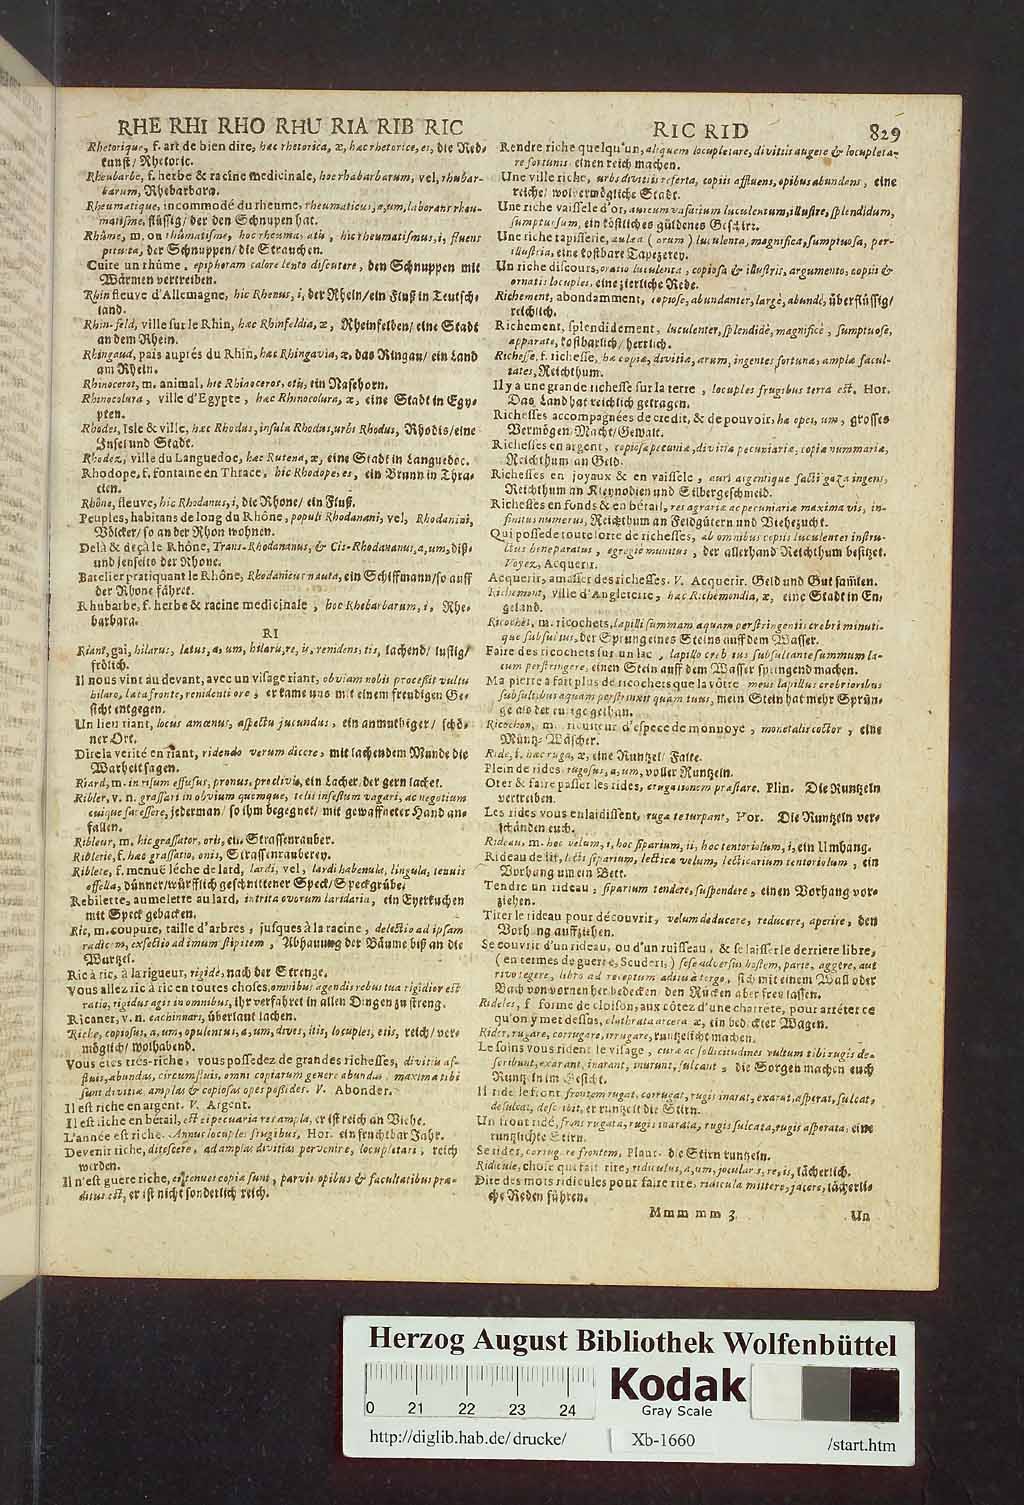 RHE RHI RHO RHU RIA RIB RIC
Rhetorique, f. art de bien dire, hæc rhetorica, æ, hæc rhetorice, es, die Red-
kunst/ Rhetoric.
Rheubarbe, f. herbe & racine medicinale, hoc rhabarbarum, vel, rhubar-
barum, Rhebarbara.
Rheumatique, incommodé du rheume, rheumaticus, a, um, laborans rheu-
matisme, flüssig/ der den Schnupen hat.
Rhûme, m. ou rhûmatisme, hoc rheuma, atis, hic rheumatismus, i, fluens
pituita, der Schnuppen/ die Strauchen.
Cuite un rhûme, epiphoram calore lento discutere, den Schnuppen mit
Wärmen vertreiben.
Rhin fleuve d'Allemagne, hic Rhenus, i, der Rhein/ ein Fluß in Teutsch-
land.
Rhin-feld, ville sur le Rhin, hæc Rhinfeldia, æ, Rheinfelden/ eine Stadt
an dem Rhein.
Rhingaud, païs auprés du Rhin, hæc Rhingavia, æ, das Ringau/ ein Land
am Rhein.
Rhinocerot, m. animal, hic Rhinoceros, otis, ein Nasehorn.
Rhinocolura, ville d'Egypte, hæc Rhinocolura, æ, eine Stadt in Egy-
pten.
Rhodes, Isle & ville, hæc Rhodus, insula Rhodus, urbs Rhodus, Rhodis/ eine
Insel und Stadt.
Rhodez, ville du Languedoc, hæc Rutena, æ, eine Stadt in Languedoc.
Rhodope, f. fontaine en Thrace, hic Rhodope, es, ein Brunn in Thra-
cien.
Rhône, fleuve, hic Rhodanus, i, die Rhone/ ein Fluß.
Peuples, habitans de long du Rhône, populi Rhodanani, vel, Rhodanini,
Völcker/ so an der Rhon wohnen.
Delà & deçà le Rhône, Trans-Rhodananus, & Cis-Rhodananus, a, um, diß-
und jenseits der Rhone.
Batelier pratiquant le Rhône, Rhodanicus nauta, ein Schiffmann/ so auff
der Rhone fähret.
Rhubarbe, f. herbe & racine medicinale, hoc Rhebarbarum, i, Rhe-
barbara.
RI
Riant, gai, hilarus, lætus, a, um, hilaris, re, is, renidens, tis, lachend/ lustig/
frölich.
Il nous vint au devant, avec un visage riant, obviam nobis processit vultu
hilaro, læta fronte, renidenti ore, er kame uns mit einem freudigen Ge-
sicht entgegen.
Un lieu riant, locus amœnus, aspectu jucundus, ein anmuthiger/ schö-
ner Ort.
Dire la verité en riant, ridendo verum dicere, mit lachendem Munde die
Warheit sagen.
Riard, m. in risum effusus, pronus, proclivis, ein Lacher/ der gern lachet.
Ribler, v. n. grassari in obvium quemque, telis infestum vagari, ac negotium
cuique facessere, jederman/ so ihm begegnet/ mit gewaffneter Hand an-
fallen.
Ribleur, m. hic grassator, oris, ein Strassenrauber.
Riblerie, f. hæc grassatio, onis, Strassenrauberey.
Riblete, f. menuë léche de lard, lardi, vel, lardi habenula, lingula, tenuis
offella, dünner/ würfflich geschnittener Speck/ Speckgrübe.
Rebilette, aumelette au lard, intrita ovorum laridaria, ein Eyerkuchen
mit Speck gebacken.
Ric, m. coupure, taille d'arbres, jusques à la racine, delectio ad ipsam
radicem, exsectio ad imum stipitem, Abhauung der Bäume biß an die
Wurtzel.
Ric à ric, à la rigueur, rigidè, nach der Strenge.
Vous allez ric à ric en toutes choses, omnibus agendis rebus tua rigidior est
ratio, rigidus agis in omnibus, ihr verfahret in allen Dingen zu streng.
Ricaner, v. n. cachinnari, überlaut lachen.
Riche, copiosus, a, um, opulentus, a, um, dives, itis, locuples, etis, reich/ ver-
möglich/ wolhabend.
Vous étes trés-riche, vous possedez de grandes richesses, divitiis af-
fluis, abundas, circumfluis, omni copiarum genere abundas, maximæ tibi
sunt divitiæ, amplas & copiosas opes possides. V. Abonder.
Il est riche en argent. V. Argent.
Il est riche en bétail, est ei pecuaria res ampla, er ist reich an Viehe.
L'année est riche. Annus locuples frugibus, Hor. ein fruchtbar Jahr.
Devenir riche, ditescere, ad amplas divitias pervenire, locupletari, reich
werden.
Il n'est guere riche, ei tenues copiæ sunt, parvis opibus & facultatibus præ-
ditus est, er ist nicht sonderlich reich.
RIC RID 829
Rendre riche quelqu'un, aliquem locupletare, divitiis augere & locupleta-
re fortunis, einen reich machen.
Une ville riche, urbs divitiis referta, copiis affluens, opibus abundans, eine
reiche/ wolvermögliche Stadt.
Une riche vaisselle d'or, aureum vasarium luculentum, illustre, splendidum,
sumptuosum, ein köstliches güldenes Geschirr.
Une riche tapisserie, aulæa (orum) luculenta, magnifica, sumptuosa, per-
illustria, eine kostbare Tapezerey.
Un riche discours, oratio luculenta, copiosa & illustris, argumento, copiis &
ornatis locuples, eine zierliche Rede.
Richement, abondamment, copiose, abundanter, largè, abundè, überflüssig/
reichlich.
Richement, splendidement, luculenter, splendidè, magnificè, sumptuose,
apparate, kostbarlich/ herrlich.
Richesse, f. richesse, hæ copiæ, divitiæ, arum, ingentes fortunæ, amplæ facul-
tates, Reichthum.
Il y a une grande richesse sur la terre, locuples frugibus terra est, Hor.
Das Land hat reichlich getragen.
Richesses accompagnées de credit, & de pouvoir, hæ opes, um, grosses
Vermögen/ Macht/ Gewalt.
Richesses en argent, copiosa pecunia, divitiæ pecuniariæ, copia nummaria,
Reichthum an Geld.
Richesses en joyaux & en vaisselle, auri argentique facti gaza ingens,
Reichthum an Kleynodien und Silbergeschmeid.
Richesses en fonds & en bétail, res agraria ac pecuniaria maxima vis, in-
finitus numerus, Reichthum an Feldgütern und Viehezucht.
Qui possede toute sorte de richesses, ab omnibus copiis luculenter instru-
ctus, bene paratus, egregiè munitus, der allerhand Reichthum besitzet.
Voyez, Acquerir.
Acquerir, amasser des richesses. V. Acquerir. Geld und Gut samlen.
Richemont, ville d'Angleterre, hæc Richemondia, æ, eine Stadt in En-
geland.
Ricochet, m. ricochets, lapilli summam aquam perstringentis crebri minuti-
que subsultus, der Sprung eines Steins auff dem Wasser.
Faire des ricochets sur un lac, lapillo crebrius subsultante summum la-
cum perstringere, einen Stein auff dem Wasser springend machen.
Ma pierre a fait plus de ricochets que la vôtre, meus lapillus crebrioribus
subsultibus aquam perstrinxit quàm tuus, mein Stein hat mehr Sprün-
ge als der eurige gethan.
Ricochon, m. d'espece de monnoye, monetalis coctor, eine
Müntz-Wäscher.
Ride, f. hæc ruga, æ, eine Runtzel/ Falte.
Plein de rides, rugosus, a, um, voller Runtzeln.
Oter & faire passer les rides, erugationem præstare. Plin. Die Runtzeln
vertreiben.
Les rides vous enlaidissent, rugæ te turpant, Hor. Die Runtzeln ver-
schänden euch.
Rideau, m. hoc velum, i, hoc siparium, ii, hoc tentoriolum, i, ein Umhang.
Rideau de lit, lecti siparium, lectica velum, lecticarium tentoriolum, ein
Vorhang um ein Bett.
Tendre un rideau, siparium tendere, suspendere, einen Vorhang vor-
ziehen.
Tirer le rideau pour découvrir, velum deducere, reducere, aperire, den
Vorhang auffziehen.
Se couvrir d'un rideau, ou d'un ruisseau, & se laisser le derriere libre,
(en termes de guerre, Scuderi,) sese adversùs hostem, parte, aggere, aut
rivo tegere, libro ad receptum aditu à tergo, sich mit einem Wall oder
Bach von vornen her bedecken/ den Rücken aber frey lassen.
Rideles, f. forme de cloison, aux côtez d'une charrete, pour arréter ce
qu'on y met dessus, clathrata arcera æ, ein bedeckter Wagen.
Rider, rugare, corrugare, irrugare, runtzelicht machen.
Le soins vous rident le visage, cura ac sollicitudines vultum tibi rugis de-
scribunt, exarant, inarant, inurunt, sulcant, die Sorgen machen euch
Runtzeln im Gesicht.
Il ride le front, frontem rugat, corrugat, rugis inarat, exarat, asperat, sulcat,
desulcat, describit, er runtzelt die Stirn.
Un front ridé, frons rugata, rugis inarata, rugis sulcata, rugis asperata, eine
runtzlichte Stirn.
Se rides, corrugare frontem, Plaut. die Stirn runtzeln.
Ridicule, chose qui fait rire, ridiculus, a, um, jocularis, re, is, lächerlich.
Dire des mots ridicules pour faire rire, ridicula mittere, jacere, lächerli-
che Reden führen.
Mmm mm 3 Un
Herzog August Bibliothek Wolfenbüttel
0 21 22 23 24
Kodak
Gray Scale
http://diglib.hab.de/drucke/ Xb-1660 /start.htm